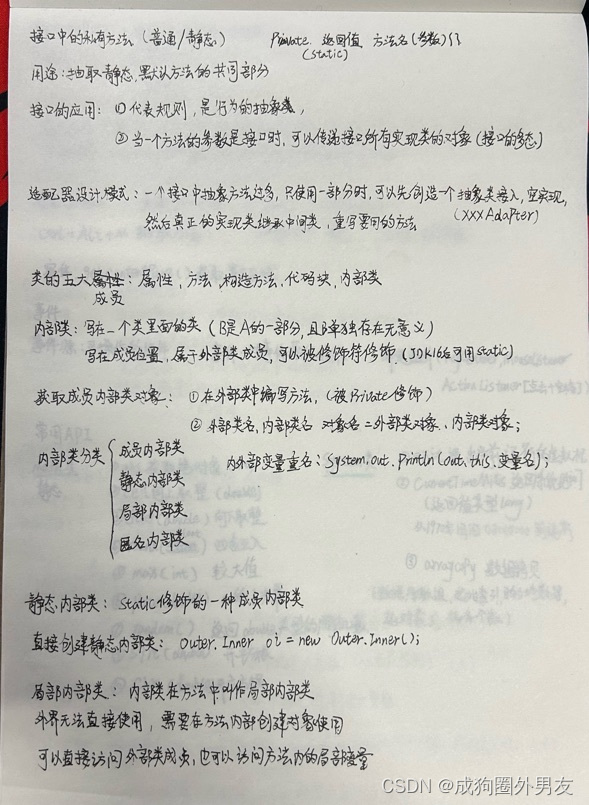 接口中的私有方法（普通/静态） Private 返回值 方法名(参数){}
(static)
用途：抽取静态,默认方法的共同部分
接口的应用：①代表规则，是行为的抽象类，
②当一个方法的参数是接口时，可以传递接口所有实现类的对象（接口的多态）
适配器设计模式：一个接口中抽象方法过多，只使用一部分时，可以先创造一个抽象类接入，空实现，
然后真正的实现类继承中间类，重写要用的方法 (XXXAdapter)
类的五大属性：属性，方法，构造方法，代码块，内部类
成员
内部类：写在一个类里面的类（B是A的一部分，且B单独存在无意义）
写在成员位置，属于外部类成员，可以被修饰符修饰（JDK16后可用static）
获取成员内部类对象：①在外部类中编写方法，（被Private修饰）
②外部类名,内部类名 对象名=外部类对象.内部类对象；
内部类分类 成员内部类 内外部变量重名：System.out.Println(out.this.变量名);
静态内部类
局部内部类
匿名内部类
静态内部类：Static修饰的一种成员内部类
直接创建静态内部类：Outer.Inner oi = new Outer.Inner();
局部内部类：内部类在方法中叫作局部内部类
外界无法直接使用，需要在方法内部创建对象使用
可以直接访问外部类成员，也可以访问方法内的局部变量
CSDN @成狗圈外男友